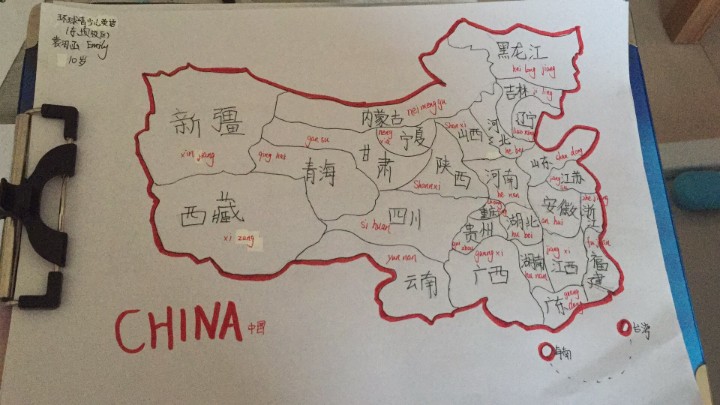 环球
Emily
10岁
黑龙江
hei long jiang
吉林
ji ling
辽宁
内蒙古
nei meng gu
新疆
xin jiang
宁夏
甘肃
gan su
山西
Shan xi
河北
he bei
青海
qing hai
陕西
Shan xi
山东
shan dong
河南
he nan
江苏
西藏
xi zang
四川
si chuan
重庆
湖北
hu bei
安徽
an hui
浙江
贵州
云南
yun nan
广西
guang xi
湖南
hu nan
江西
jiang xi
福建
fu jian
广东
guang dong
CHINA 中国
台湾
海南